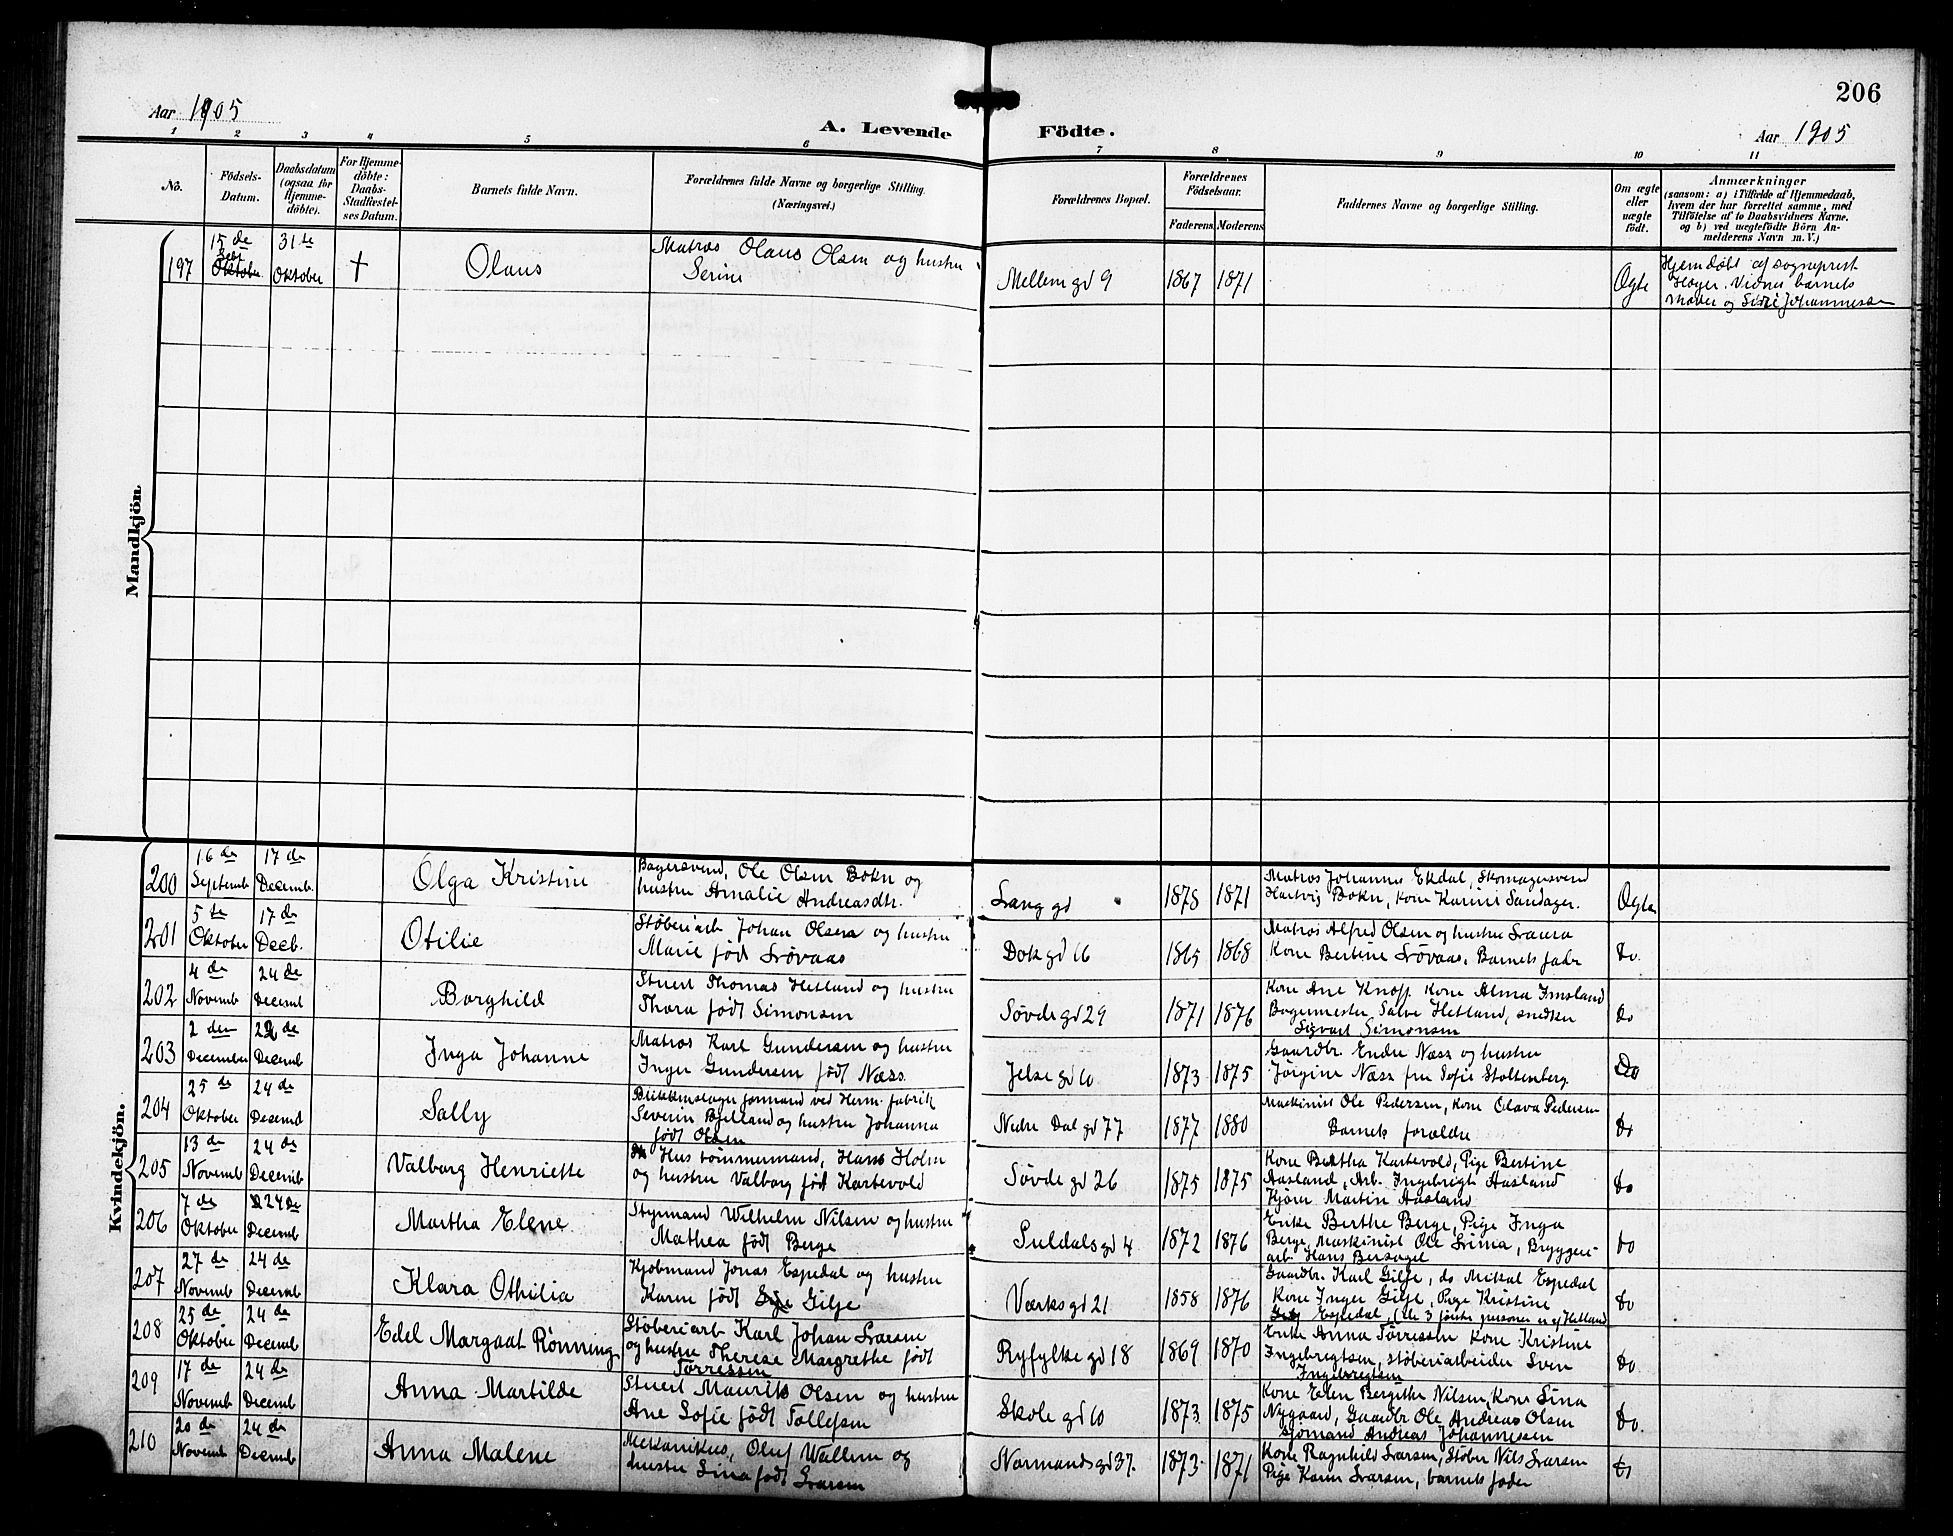 206
Aar 1905
A. Levende Födte.
Aar 1905
1 2 3 4 5 6 7 8 9 10 11
No.
Födsels-Datum.
Daabsdatum (ogsaa for Hjemme-döbte).
For Hjemme-döbte: Daabs-Stadfæstel-ses Datum.
Barnets fulde Navn.
Forældrenes fulde Navne og borgerlige Stilling.
(Næringsvei.)
Forældrenes Bopæl.
Forældrenes Födselsaar.
Faderens Moderens
Faddernes Navne og borgerlige Stilling.
Om ægte eller uægte födt.
Anmærkninger
(saasom: a) i Tilfælde af Hjemmedaab,
hvem der har forrettet samme, med
Tilföielse af to Daabsvidners Navne.
og b) ved uægtefödte Börn An-
melderens Navn m. V.)
Mandkjön
197 15 de Sebt Oktober 31 te Oktober † Olaus
Matros Olaus Olsen og hustru
Serine
Mellem gd 9 1867 1871 Ogte
Hjemdøbt af sogneprest
Høyer. Vidner barnets
Moder og Johannesen
Kvindekjön.
200 16 de Septemb 17 de Decemb. Olga Kristine
Bagersvend, Ole Olsen Bokn og
hustru Amalie Andreasdtr.
Lang gd 1878 1871
Matros Johannes Ekdal, Skomagersvend
Hartvig Bokn, kone Karine Sandager.
Ogte
201 5 te Oktober 17 de Decb. Otilie
Støberiarb Johan Olsen og hustru
Marie født Løvaas
Dok gd 16 1865 1868
Matros Alfred Olsen og hustru Laura
Kone Bertine Løvaas, Barnets fader
Do.
202 4 de Novemb 24 de Decemb Borghild
Stuert Thomas Hetland og hustru
Thora født Simonsen
Søvde gd 29 1871 1876
Kone Ane Knoff. Kone Alma Imsland
Bagermester, Salve Hetland, snedker
Sigvart Simonsen
Do
203 2 den December 22 de Decemb Inga Johanne
Matros Karl Gundersen og hustru
Inger Gundersen født Næss.
Jelse gd 10 1873 1875
Gaardbr. Endre Næss og hustru
Jørgine Næss fru Sofie Stoltenberg
Do
204 25 de Oktober 24 de Decemb Sally
Blikkenslager formand ved Herm. fabrik
Severin Bjelland og hustru Johanna
født Olsen
Nedre Dal gd 77 1877 1880
Maskinist Ole Pedersen, kone Olava Pedersen
Barnets forældre
Do
205 13 de Novemb 24 de Decemb Valborg Henriette
Hus tømmermand, Hans Holm
og hustru Valborg født Kartevold
Søvde gd 26 1875 1875
Kone Bertha Kartevold, Pige Bertine
Aasland, Arb. Ingebrigt Aasland
Martin Aasland
Do
206 7 de Oktober 24 de Decemb Martha Elene
Styrmand Wilhelm Nilsen og hustru
Mathea født Berge
Suldals gd 4 1872 1876
Enke Berthe Berge, Pige Inga
Berge, Maskinist Ole Lima, Bryggeri
arb. Hans Bersagel
Do
207 27 de Novemb 24 de Decemb Klara Othilia
Kjøbmand Jonas Espedal og hustru
Karen født Gilje
Værks gd 21 1858 1876
Gaardbr. Karl Gilje, do Mikal Espedal
Kone Inger Gilje, Pige Kristine
Espedal, (de 3 første personer er ej Hetland
Do
208 25 de Oktober 24 de Decemb Edel Margaat Rønning
Støberiarb Karl Johan Larsen
og hustru Therese Margrethe født
Tørressen
Ryfylke gd 18 1869 1870
Enke Anna Tørressen kone Kristine
Ingebregtsen, støberiarbeider Sven
Ingebregtsen
Do.
209 17 de Novemb 24 de Decemb Anna Martilde
Stuert Maurits Olsen og hustru
Ane Sofie født Tollefsen
Skole gd 10 1873. 1875
Kone Elen Bergithe Nilsen, Kone Sina
Nygaard, Gaardbr Ole Andreas Olsen
Sjømand Andreas Johannessen
Do.
210 20 de Novemb 24 de Decemb Anna Malene
Mekanikus, Oluf Wallem og
hustru Sina født Larsen
Normands gd 37. 1873. 1871
Kone Ragnhild Larsen, Støber Nils Larsen
Pige Karen Larsen, barnets fader
Do